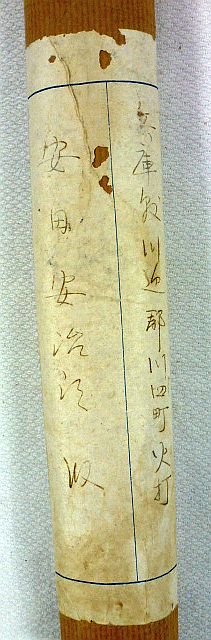 兵庫縣川邊郡川西町火打
安田安治郎殿